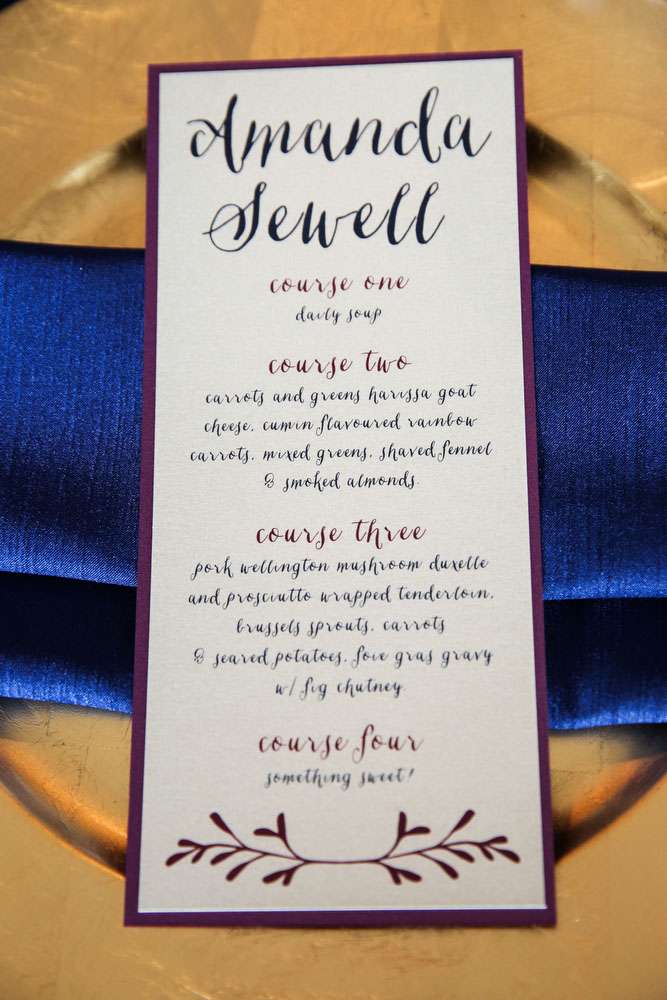 Amanda
Sewell
course one
daily soup
course two
carrots and greens harissa goat
cheese, cumin flavoured rainbow
carrots, mixed greens, shaved fennel
& smoked almonds.
course three
pork wellington mushroom duxelle
and prosciutto wrapped tenderloin,
brussels sprouts, carrots
& seared potatoes, foie gras gravy
w/ fig chutney
course four
something sweet!